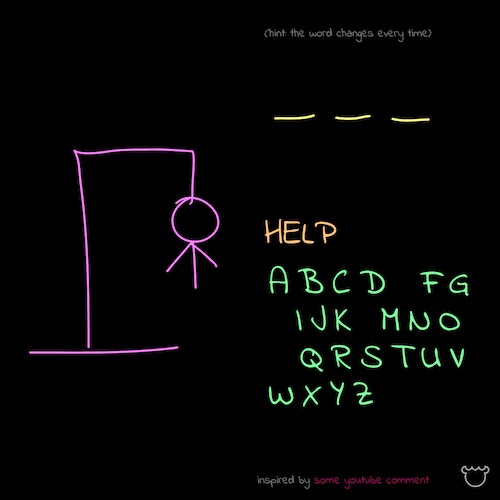 (hint: the word changes every time)
HELP
A B C D F G
I J K M N O
Q R S T U V
W X Y Z
inspired by some youtube comment